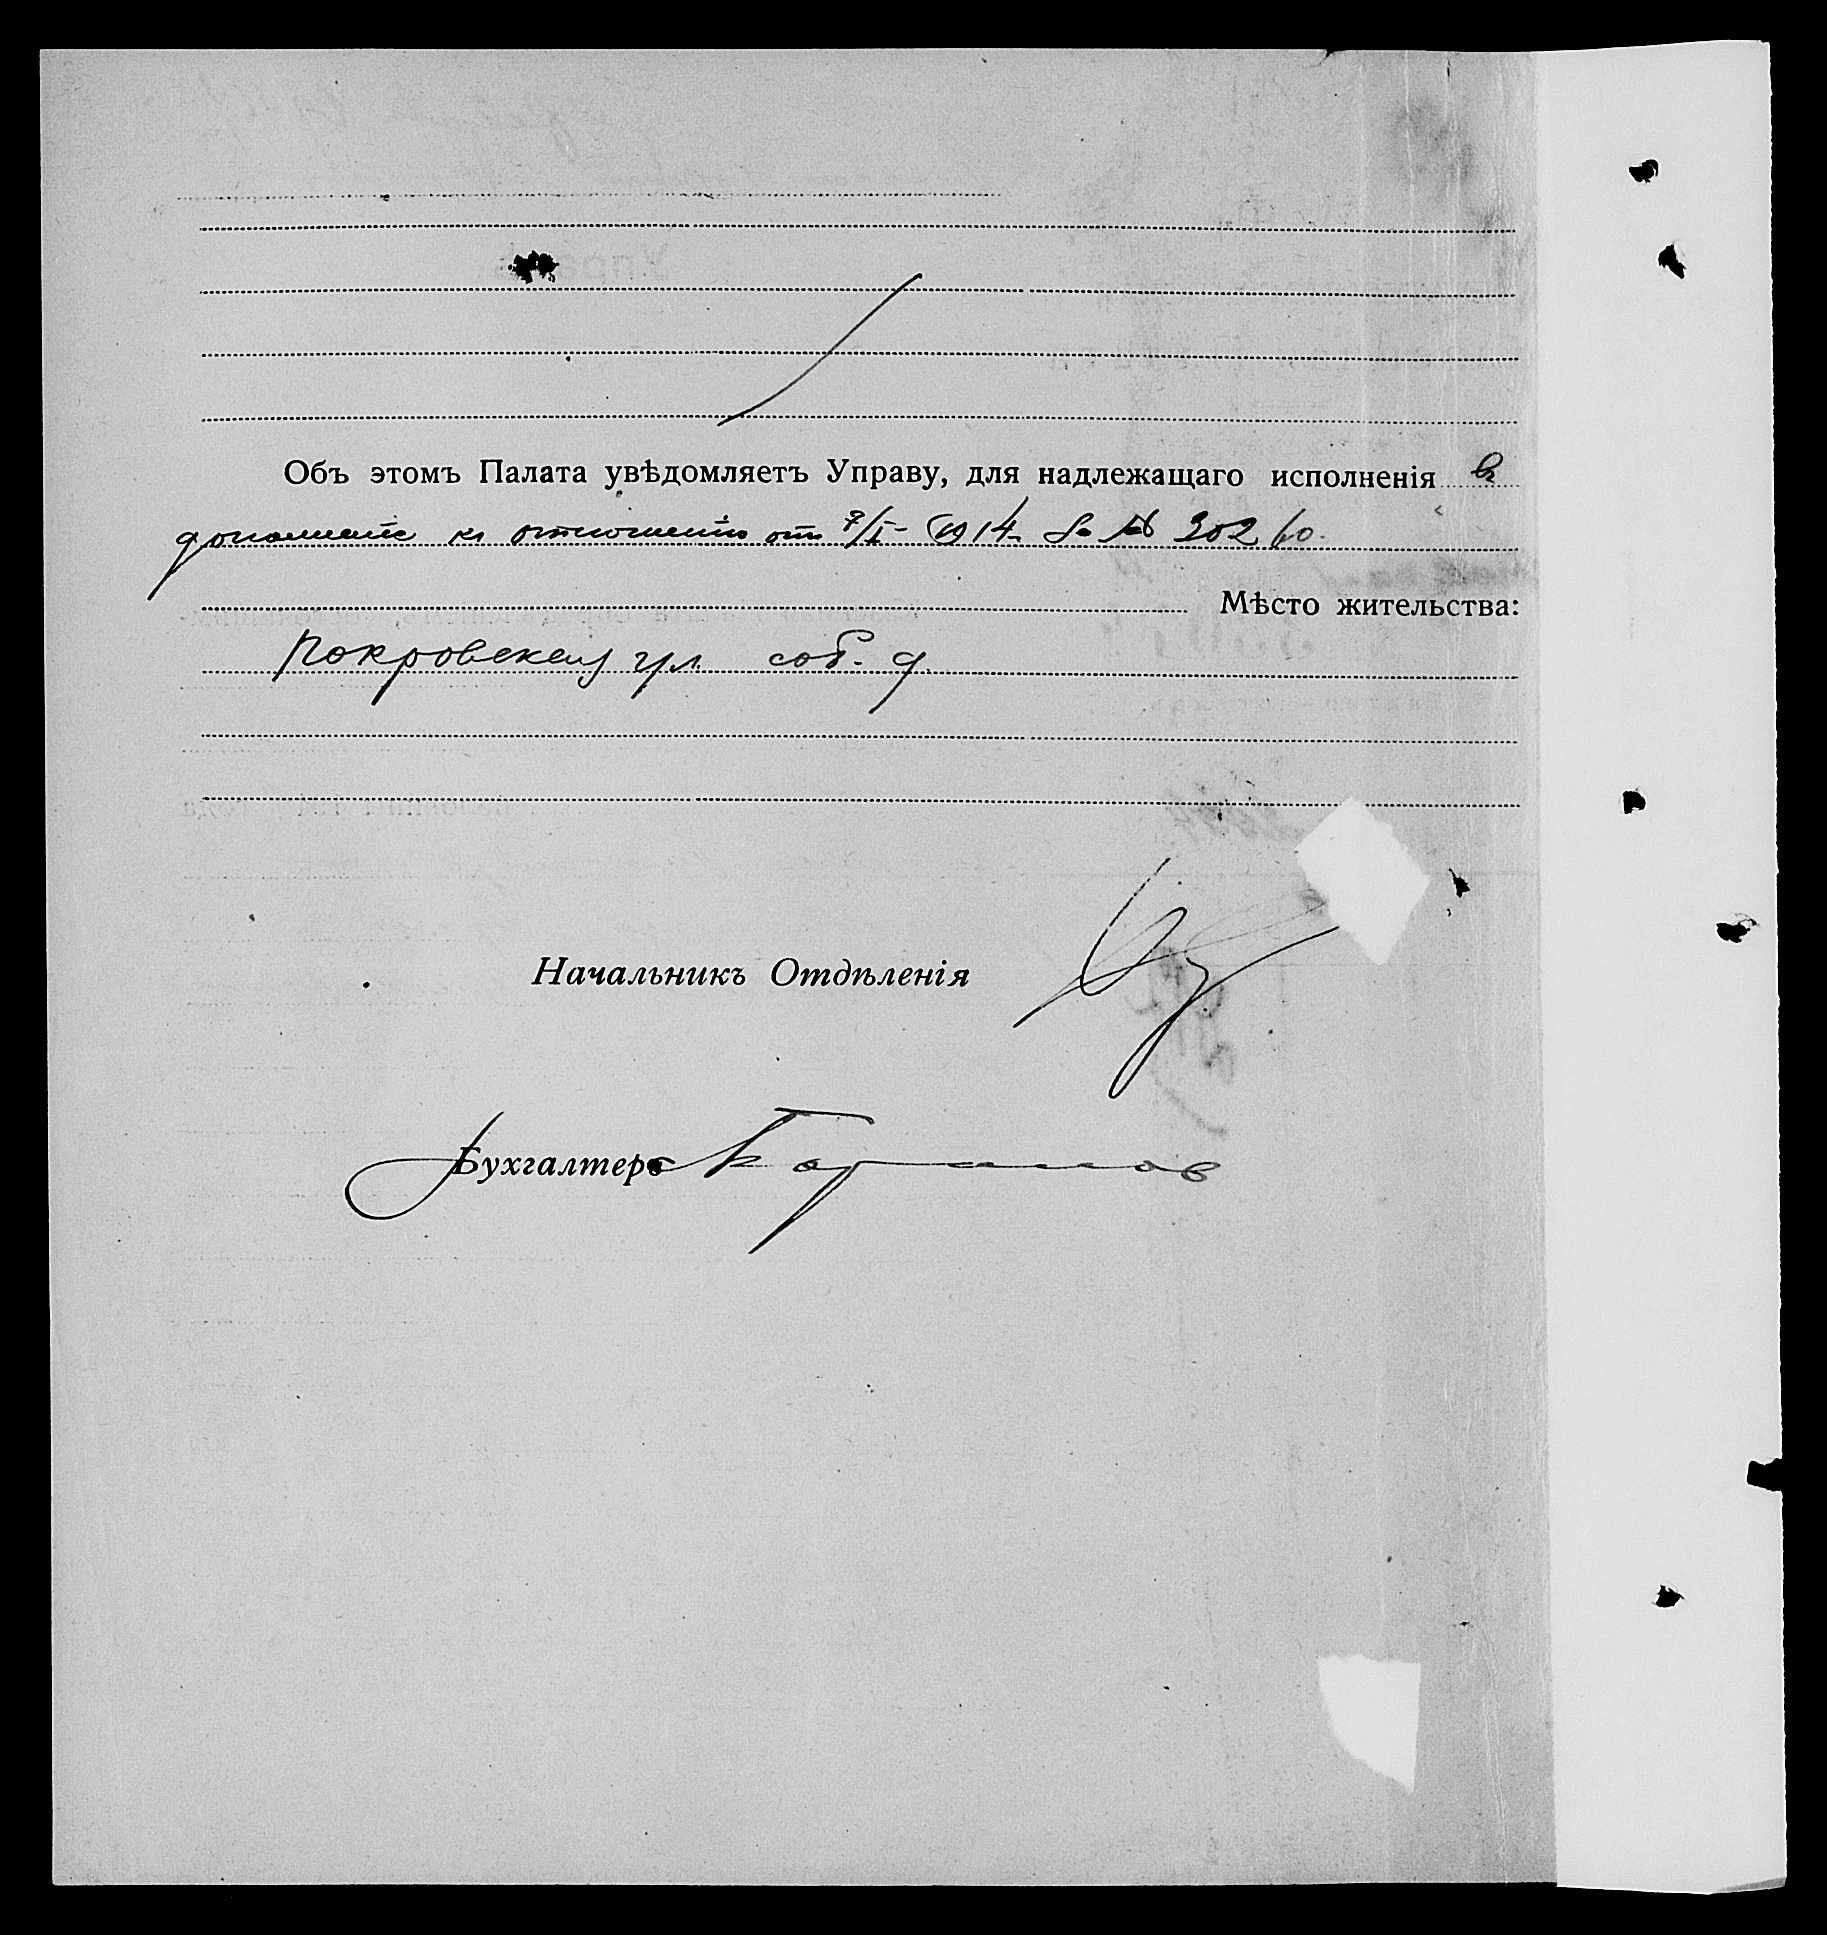 Объ этомъ Палата увѣдомляетъ Управу, для надлежащаго исполненія въ
дополненіе къ отношенію отъ 7/I - 1914 за № 30260.
Мѣсто жительства:
Покровская ул. соб. д.
Начальникъ Отдѣленія
Бухгалтеръ